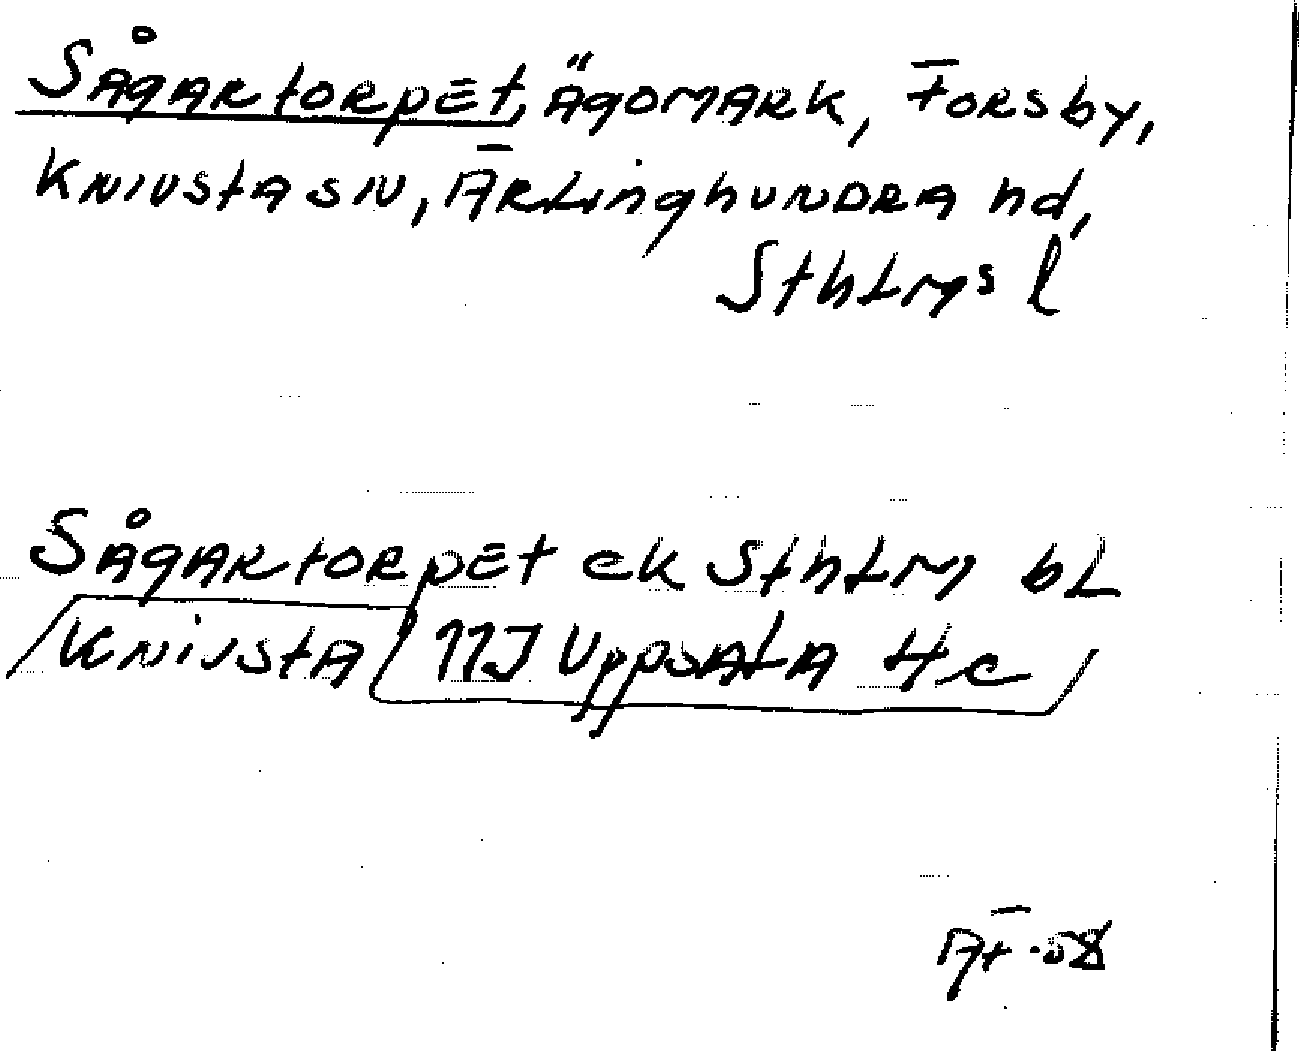 Sågartorpet, Ägomark, Forsby,
Knivsta sn, Ärlinghundra hd,
Sthlms l
Sågartorpet ek Sthlm bl
Knivsta 11I Uppsala 4c
AF ·58